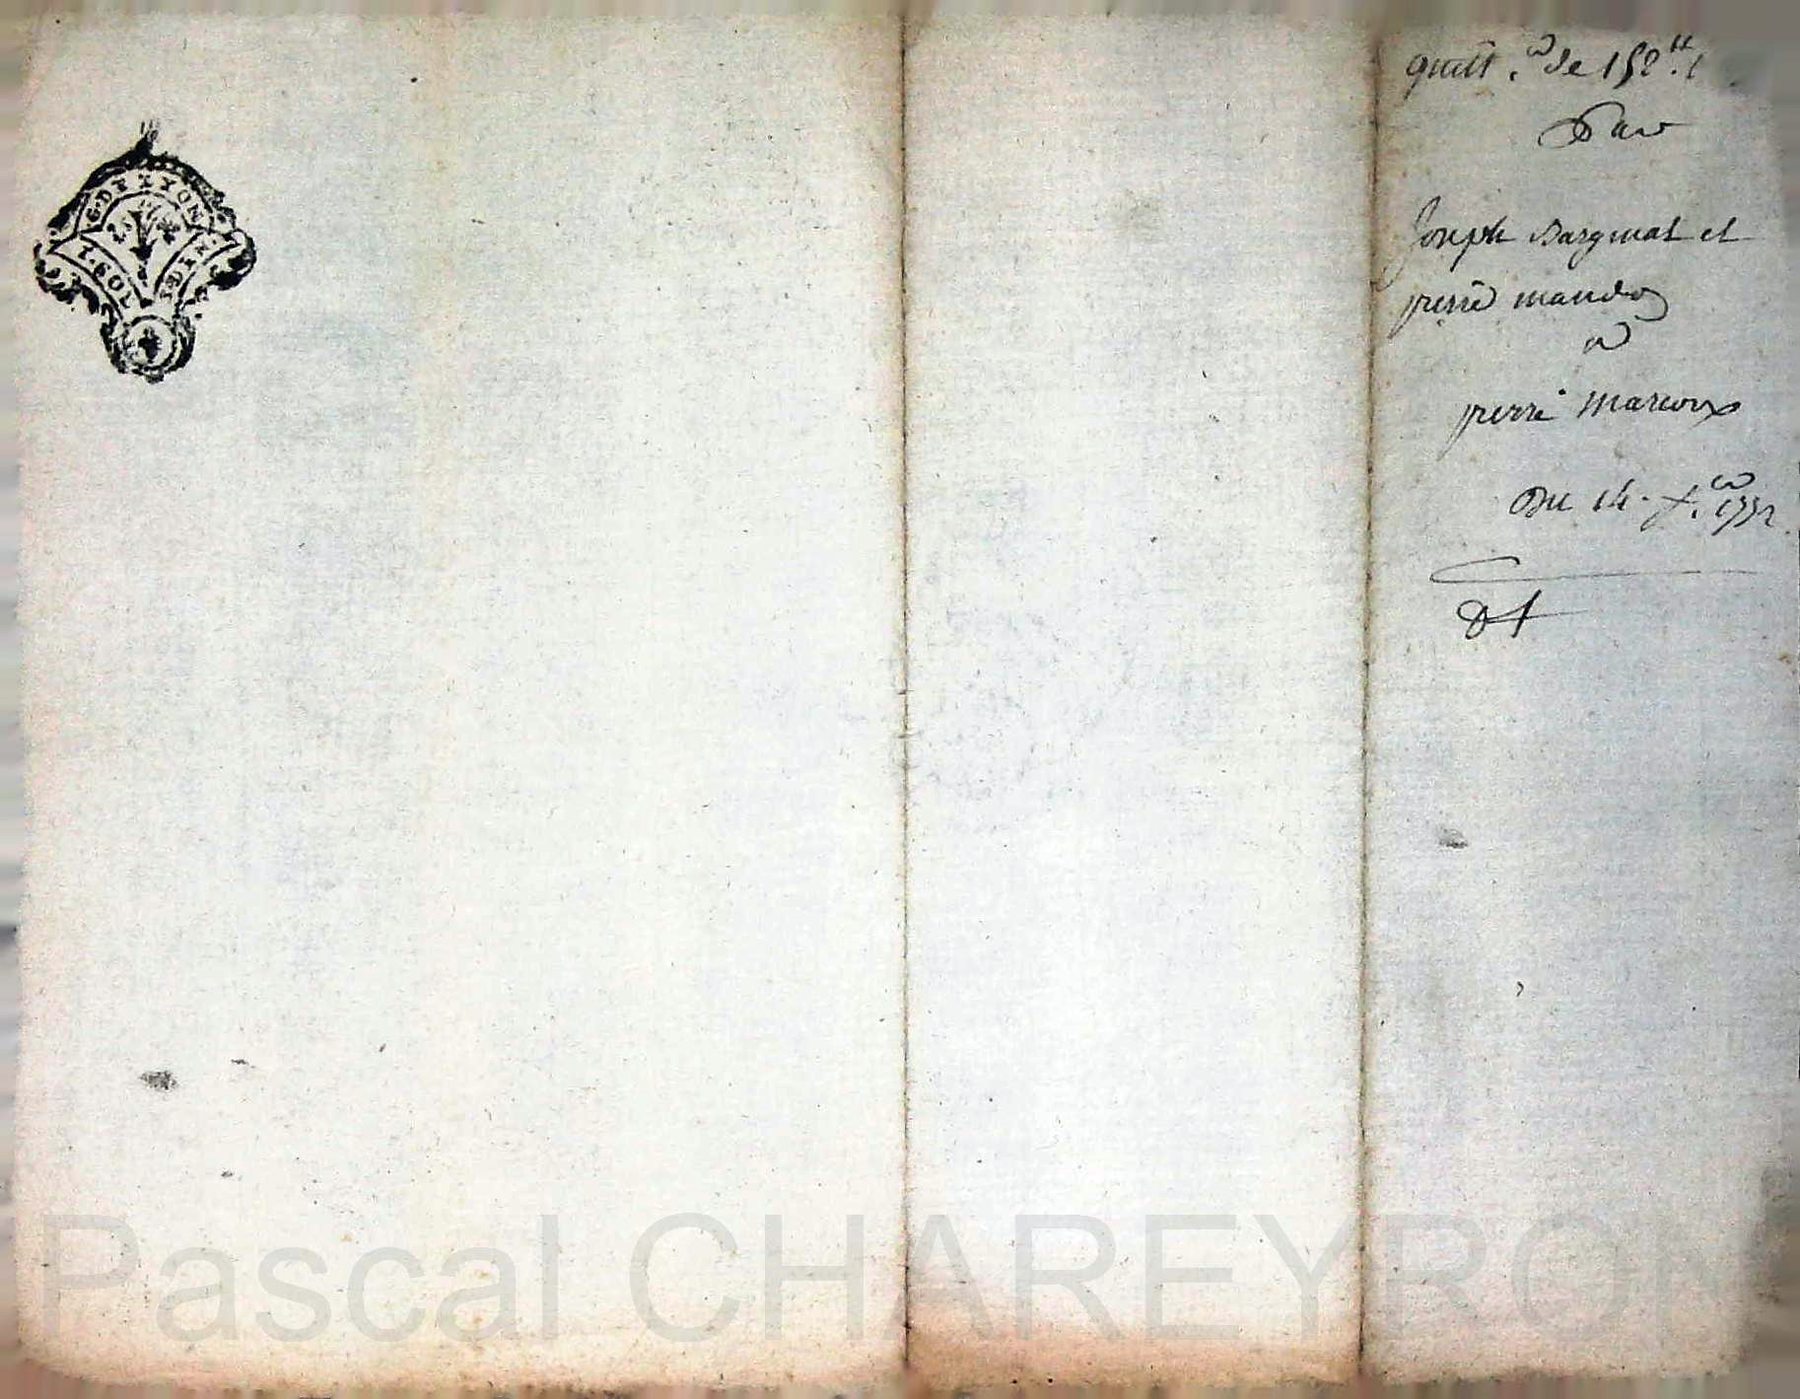 G. DE LYON
quitt.ce de 152 tt
Par
Joseph Bargniat et
pierre mando
a
pierre Marcoux
Du 14. x.e 1772
Pascal CHAREYRON